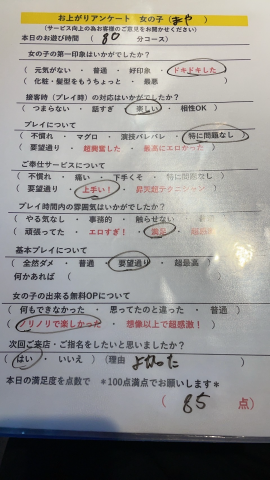 お上がりアンケート 女の子（まや）
（サービス向上の為お客様のご意見をお聞かせください）
本日のお遊び時間 （ 80 分コース）
女の子の第一印象はいかがでしたか？
（ 元気がない ・ 普通 ・ 好印象 ・ ドキドキした
（ 化粧・髪型をもうちょっと ・ 最悪
接客時（プレイ時）の対応はいかがでしたか？
（ つまらない ・ 話すぎ ・ 楽しい ・ 相性OK ）
プレイについて
（ 不慣れ ・ マグロ ・ 演技バレバレ ・ 特に問題なし
（ 要望通り ・ 超興奮した ・ 最高にエロかった
ご奉仕サービスについて
（ 不慣れ ・ 痛い ・ 下手くそ ・ 特に問題なし
（ 要望通り ・ 上手い！ ・ 昇天超テクニシャン
プレイ時間内の雰囲気はいかがでしたか？
（ やる気なし ・ 事務的 ・ 触らせない
（ 頑張ってた ・ エロすぎ！ ・ 満足 ・
基本プレイについて
（ 全然ダメ ・ 普通 ・ 要望通り ・ 超最高
何かあれば （
女の子の出来る無料OPについて
（ 何もできなかった ・ 思ってたのと違った ・ 普通
（ ノリノリで楽しかった ・ 想像以上で超感激！
次回ご来店・ご指名をしたいと思いましたか？
（ はい ・ いいえ ）（理由 よかった ）
本日の満足度を点数で ＊100点満点でお願いします＊
（ 85 点）